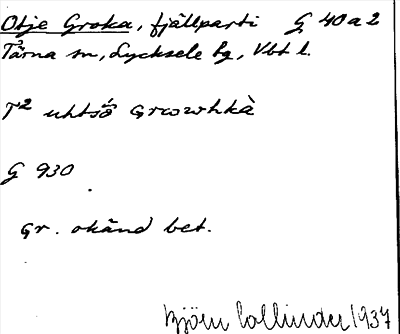 Otje Groka, fjällparti G 40 a 2
Tärna sn, Lycksele lg, Vbt l.
T² uhtsō Growhkà
G 930
Gr. okänd bet.
Björn Collinder 1937